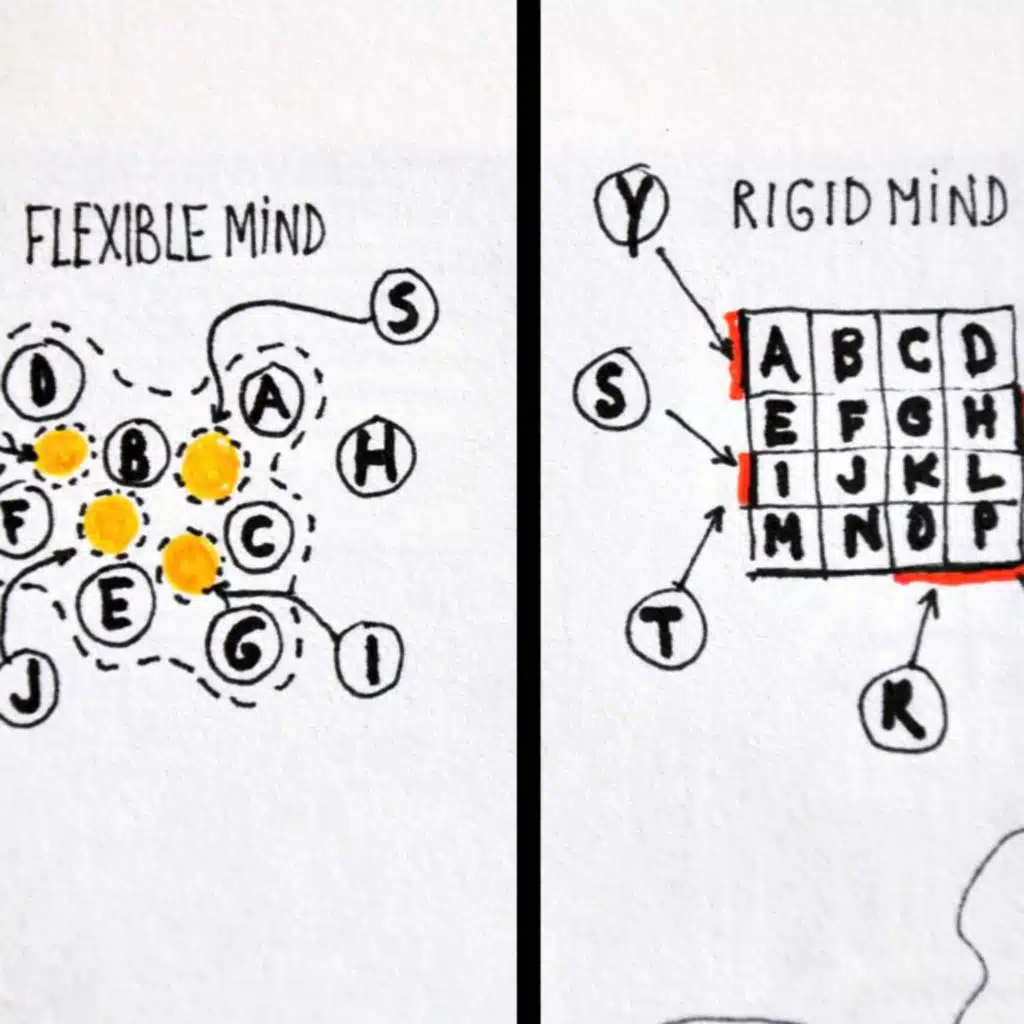 FLEXIBLE MIND
S
D
A
B
H
F
C
E
G
J
I
Y
RIGID MIND
A B C D
S
E F G H
I J K L
M N O P
T
R